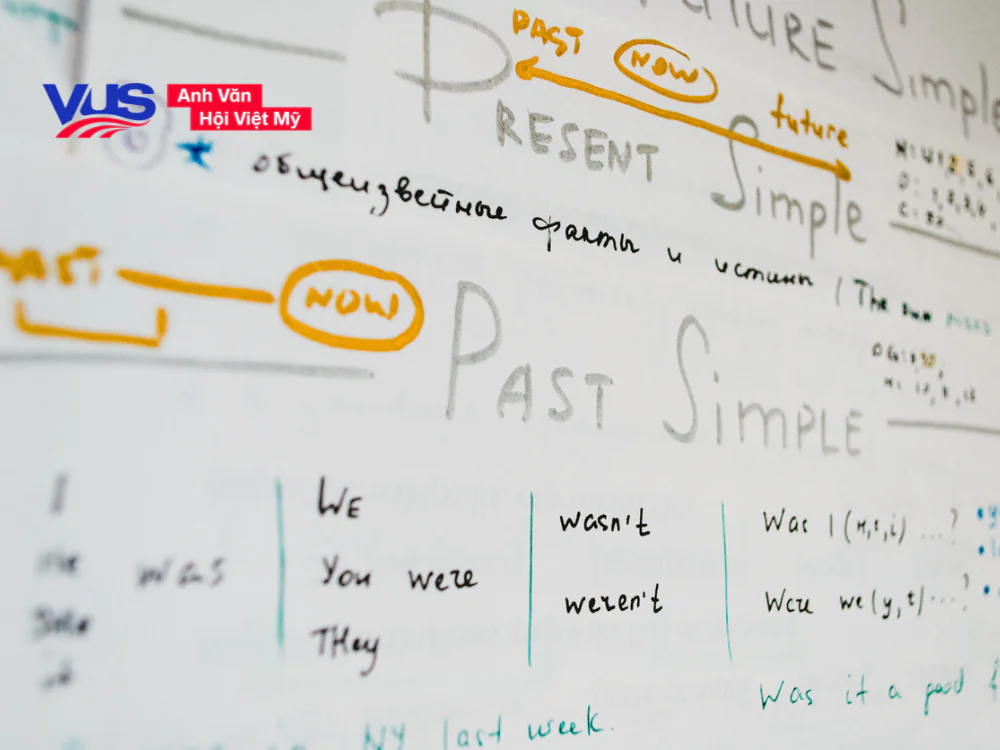 FUTURE Simple
PAST NOW future
PRESENT Simple
VUS Anh Văn
Hội Việt Mỹ
* общеизвейтные факты и истины (The sun
PAST NOW
PAST SIMPLE
I
He
She
it
was
WE
You were
THey
wasn't
weren't
Was I (H, s, i) ...?
Were we (y, t) ...?
Was it a good
NY last week.